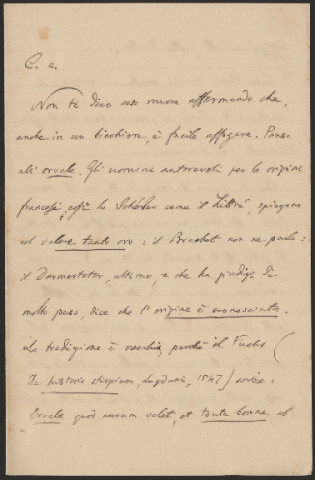 C. a.
Non te dico cosa nuova affermando che,
anche in un bicchiere, è facile affogare. Penso
all' orvale. Gli uomini autorevoli per le origini
francesi, così lo Schéler come il Littré, spiegano
col valere tanto oro: il Brachet non ne parla:
il Darmesteter, ultimo, e che ha giudizi di
molto peso, dice che l' origine è sconosciuta.
La tradizione è vecchia, perché il Fuchs (
De historia stirpium, Lugduni, 1547) scrive:
Orvale quod aurum valet, et toute bonne ab